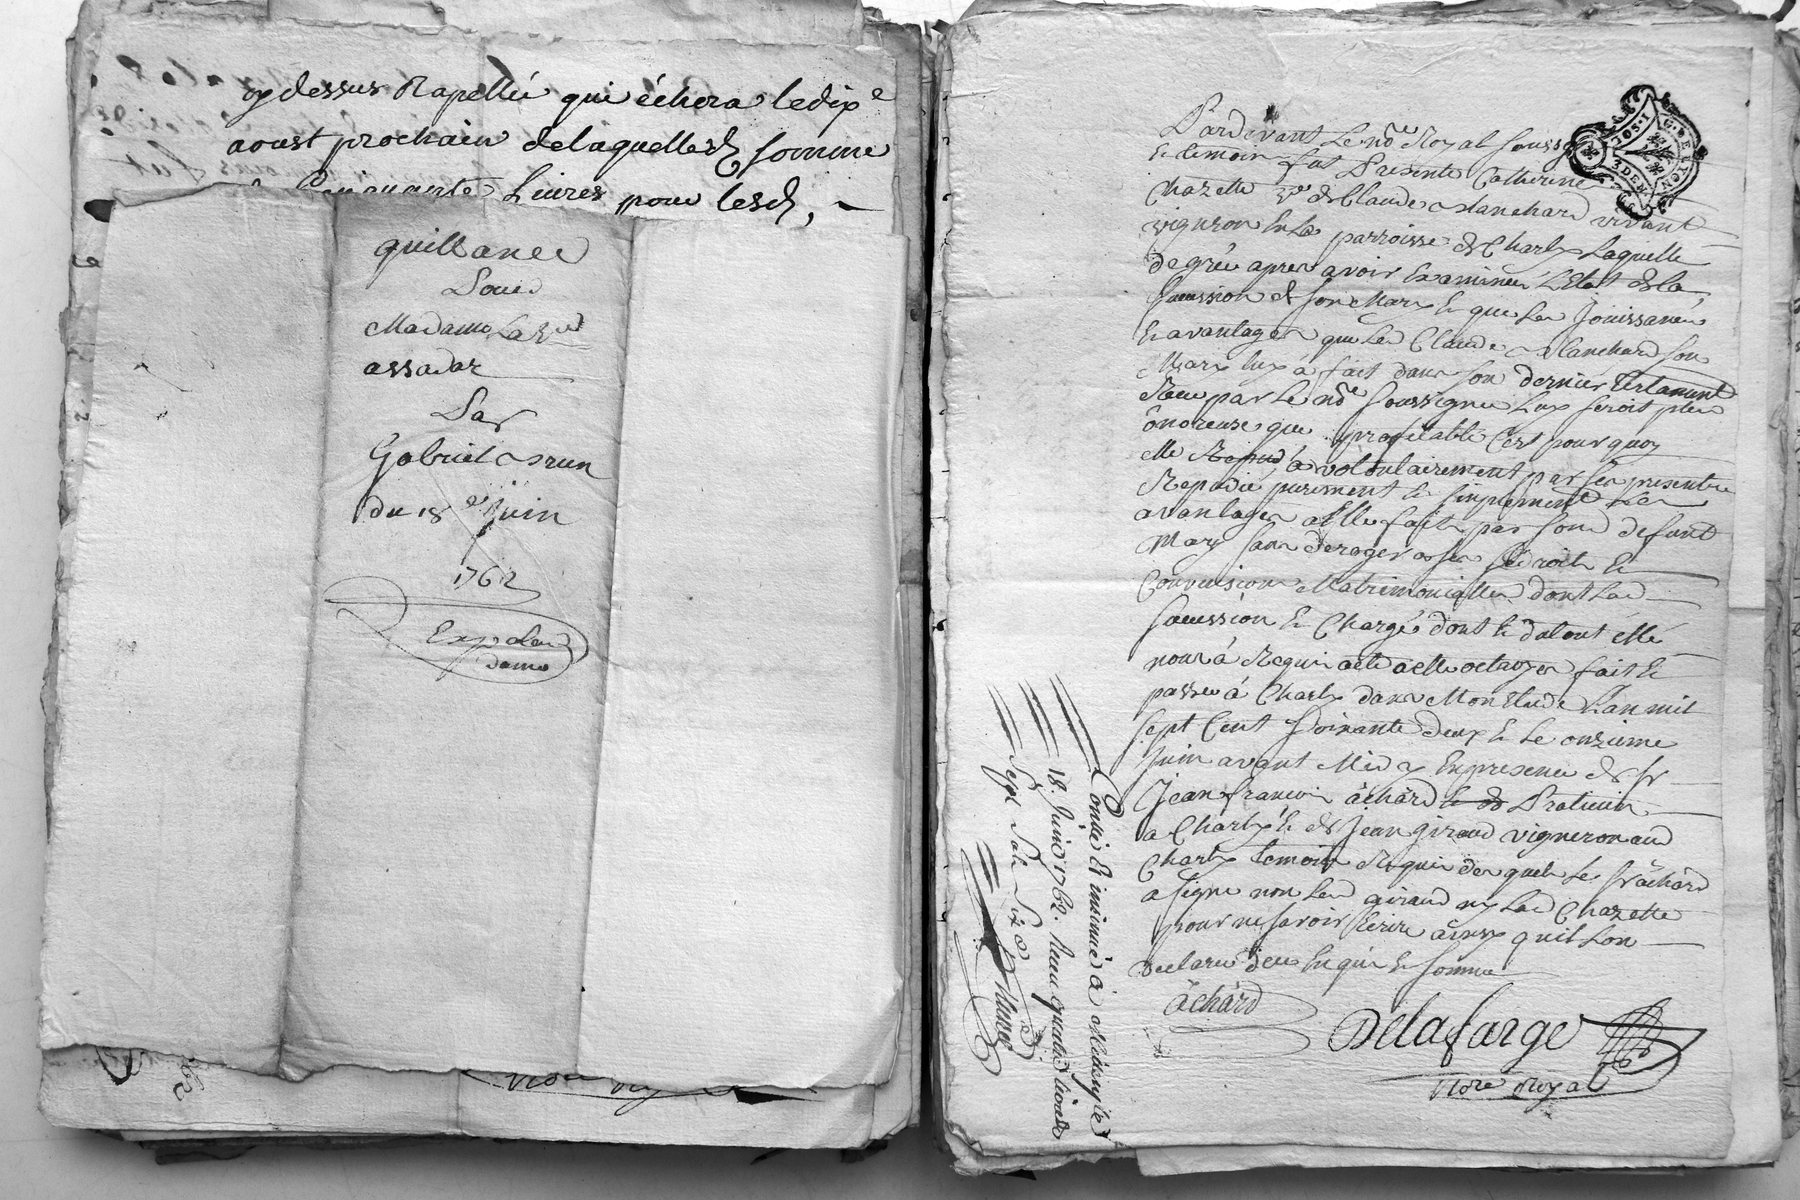 cy dessus Rapellée qui échera le dix.e
aoust prochain de laquelle d. somme
Livres pour lesd.
quittance
Pour
Madame La v.e
assadas
Par
Gabriel Brun
du 18.e Juin
1762
Exp. a lad.
dame
Pardevant Le no.re Royal soussigné
Et temoins fut Presente Catherine
Chazette v.e de Claude Blanchard vivant
vigneron En La parroisse de Charly Laquelle
de gréé apres avoir Examinée L'Etat de la
sucession de son Mary Et que Les Jouissances
Et avantages que Led. Claude Blanchard son
Mary luy a fait dans son dernier testament
Reçu par Le no.re soussigné Luy seroit plus
onoreuse que profitable C'est pourquoy
elle Repudie volontairement par ses presentes
Repudie purement Et simplement Les
avantages a Elle faits par son d. defunt
Mary sans deroger a ses droits Et
Convensions Matrimonialles dont Lad.
sucession Est Chargée dont Et du tout Elle
nous a Requis acte a elle octroyé fait Et
passé à Charly dans Mon Etude L'an mil
sept Cent soixante deux Et Le onzieme
Juin avant Midy En presence de Sr
Jean francois achard Praticien
a Charly Et de Jean giraud vigneron aud.
Charly temoins Requis desquels Le Sr achard
a signé non Led. giraud ny Lad. Chazette
pour ne savoir Ecrire ainsy qu'il L'on
declaré de ce Enquis Et sommé
achard
Delafarge
No.re Royal
Contlé Et insinué à
18. Juin 1762. Reçu quatre livres
G. DE LYON
3 DEN